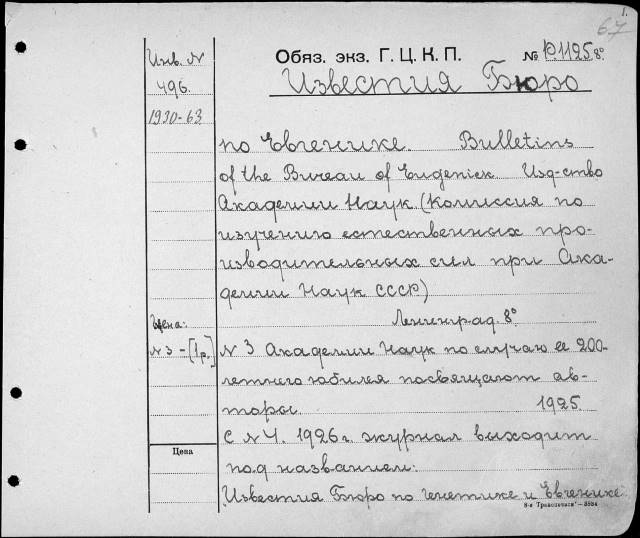 1.
67
Инв. N
496.
1930-63
Обяз. экз. Г. Ц. К. П. № Р.1125 8°.
Известия Бюро
по Евгенике. Bulletins
of the Bureau of Eugenick Изд-ство
Академии Наук (Комиссия по
изучению естественных про-
изводительных сил при Ака-
демии Наук СССР)
Ленинград. 8°
Цена:
N 3 - [1 р.]
N 3 Академии Наук по случаю ее 200-
летнего юбилея посвящают ав-
торы. 1925
С N 4. 1926 г. журнал выходит
под названием:
Известия Бюро по генетике и Евгенике.
Цена